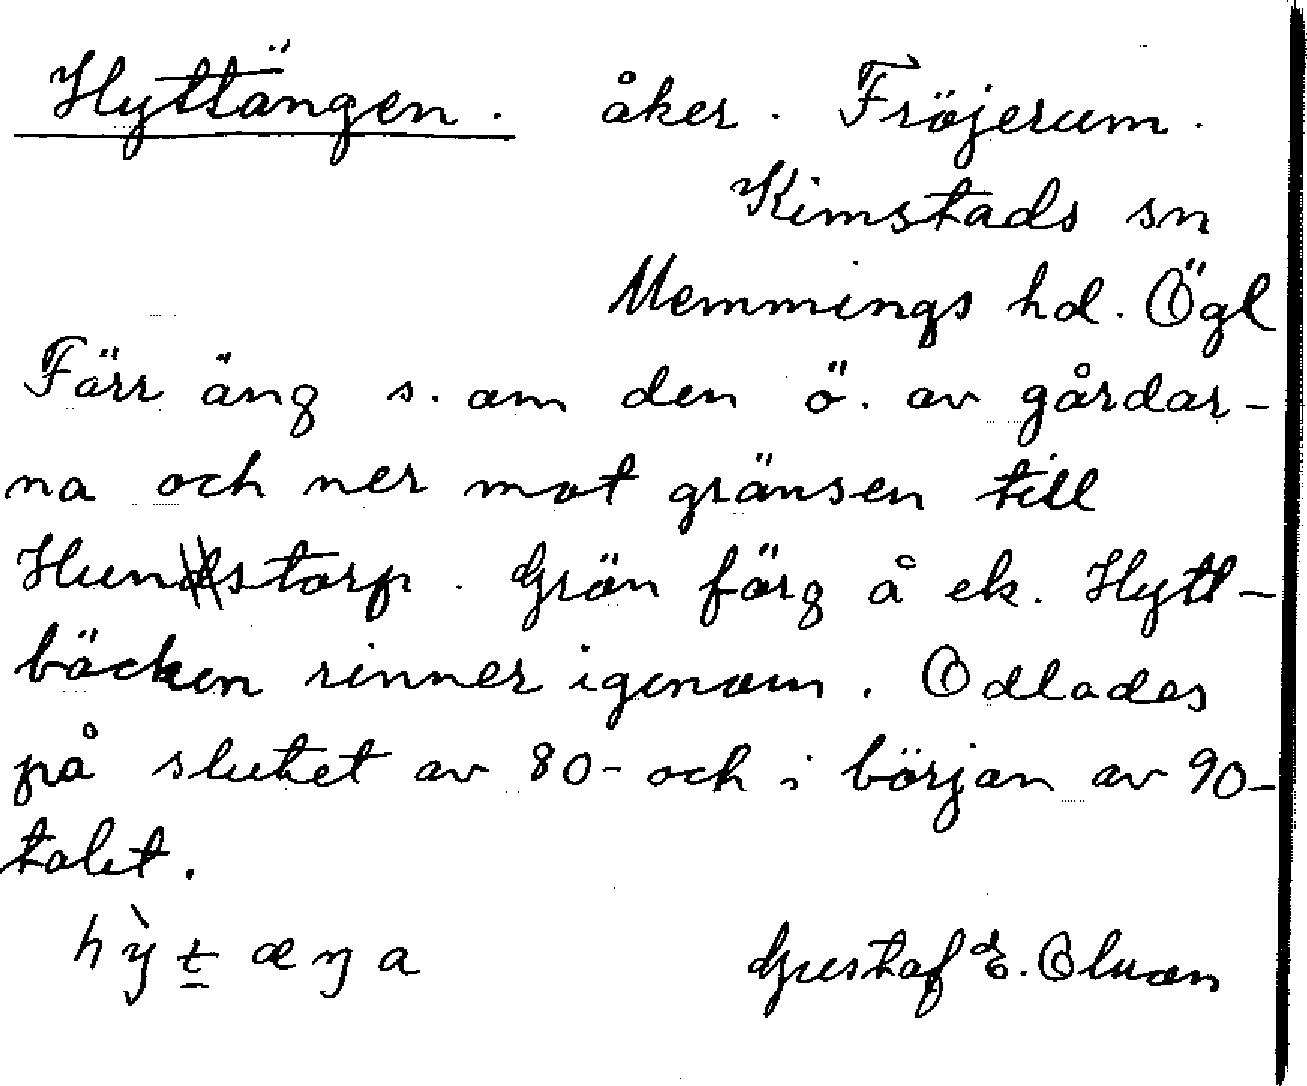 Hyttängen. åker. Fröjerum.
Kimstads sn
Memmings hd. Ögl
Förr äng s. om den ö. av gårdar-
na och ner mot gränsen till
Hunstorp. Grön färg å ek. Hytt-
bäcken rinner igenom. Odlades
på slutet av 80- och i början av 90-
talet.
hỳt̲æŋa Gustaf E. Olson